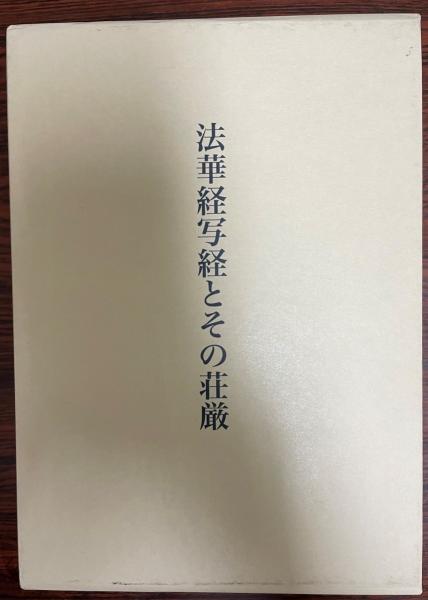 法華経写経とその荘厳